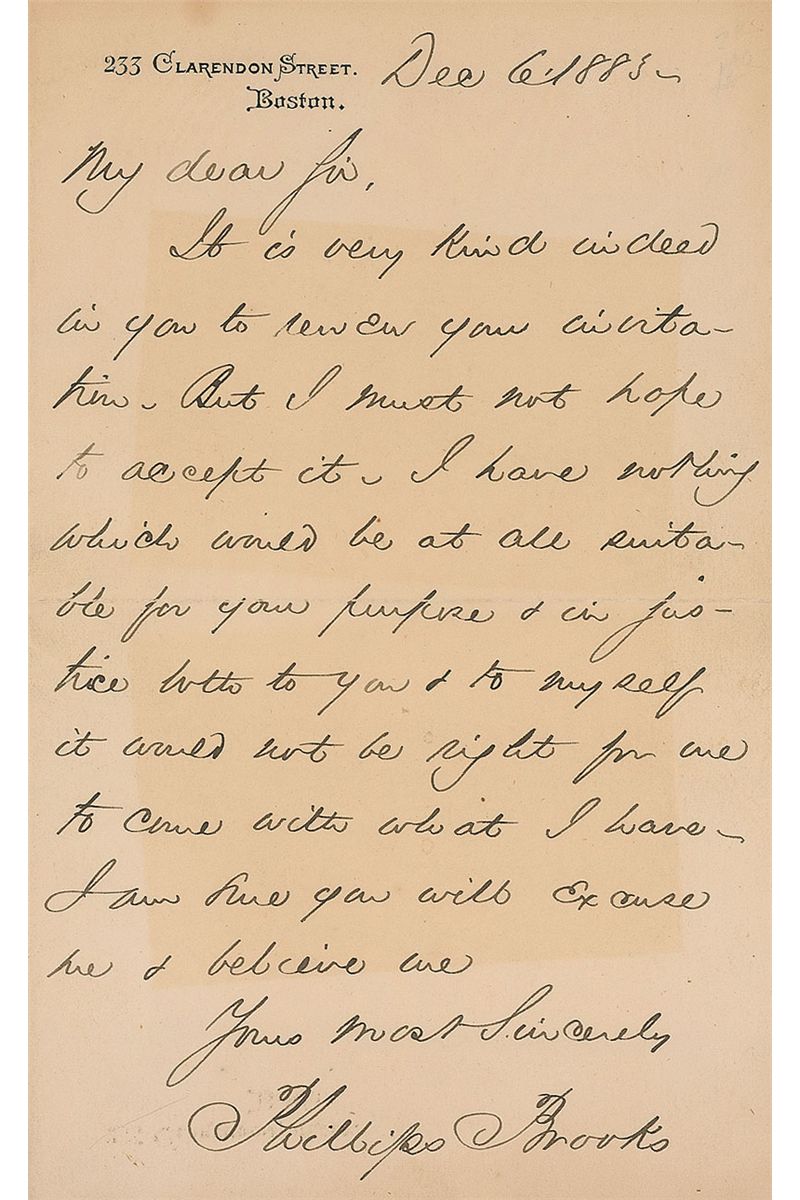 233 Clarendon Street.
Boston.
Dec 6. 1883 ~
My dear Sir,
It is very kind indeed
in you to renew your invita-
tion. But I must not hope
to accept it. I have nothing
which would be at all suita-
ble for your purpose & in jus-
tice both to you & to myself
it would not be right for me
to come with what I have ~
I am sure you will excuse
me & believe me
Yours most Sincerely
Phillips Brooks